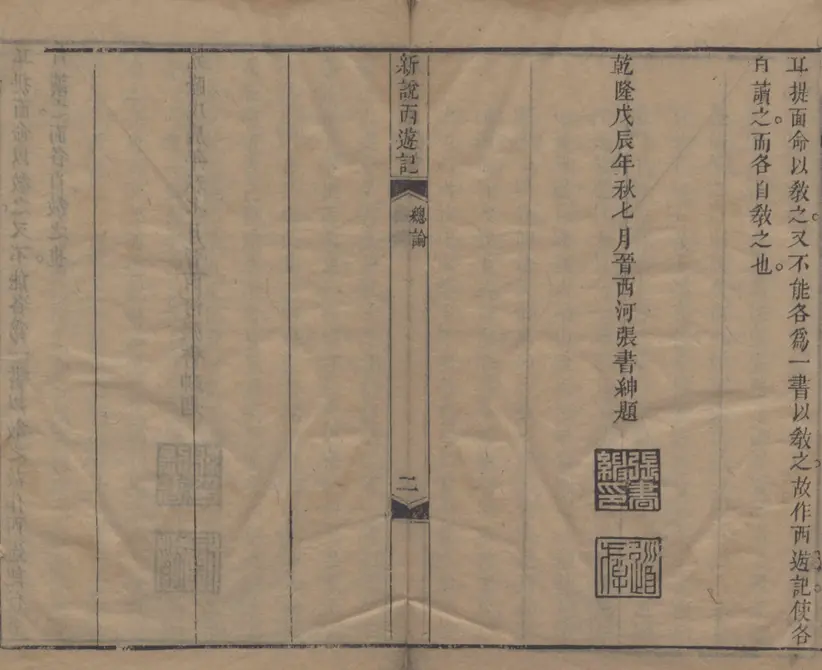 耳提面命以教之又不能各爲一書以教之故作西遊記使各
自讀之而各自教之也
乾隆戊辰年秋七月晉西河張書紳題
張書紳印
新說西遊記
總論
二